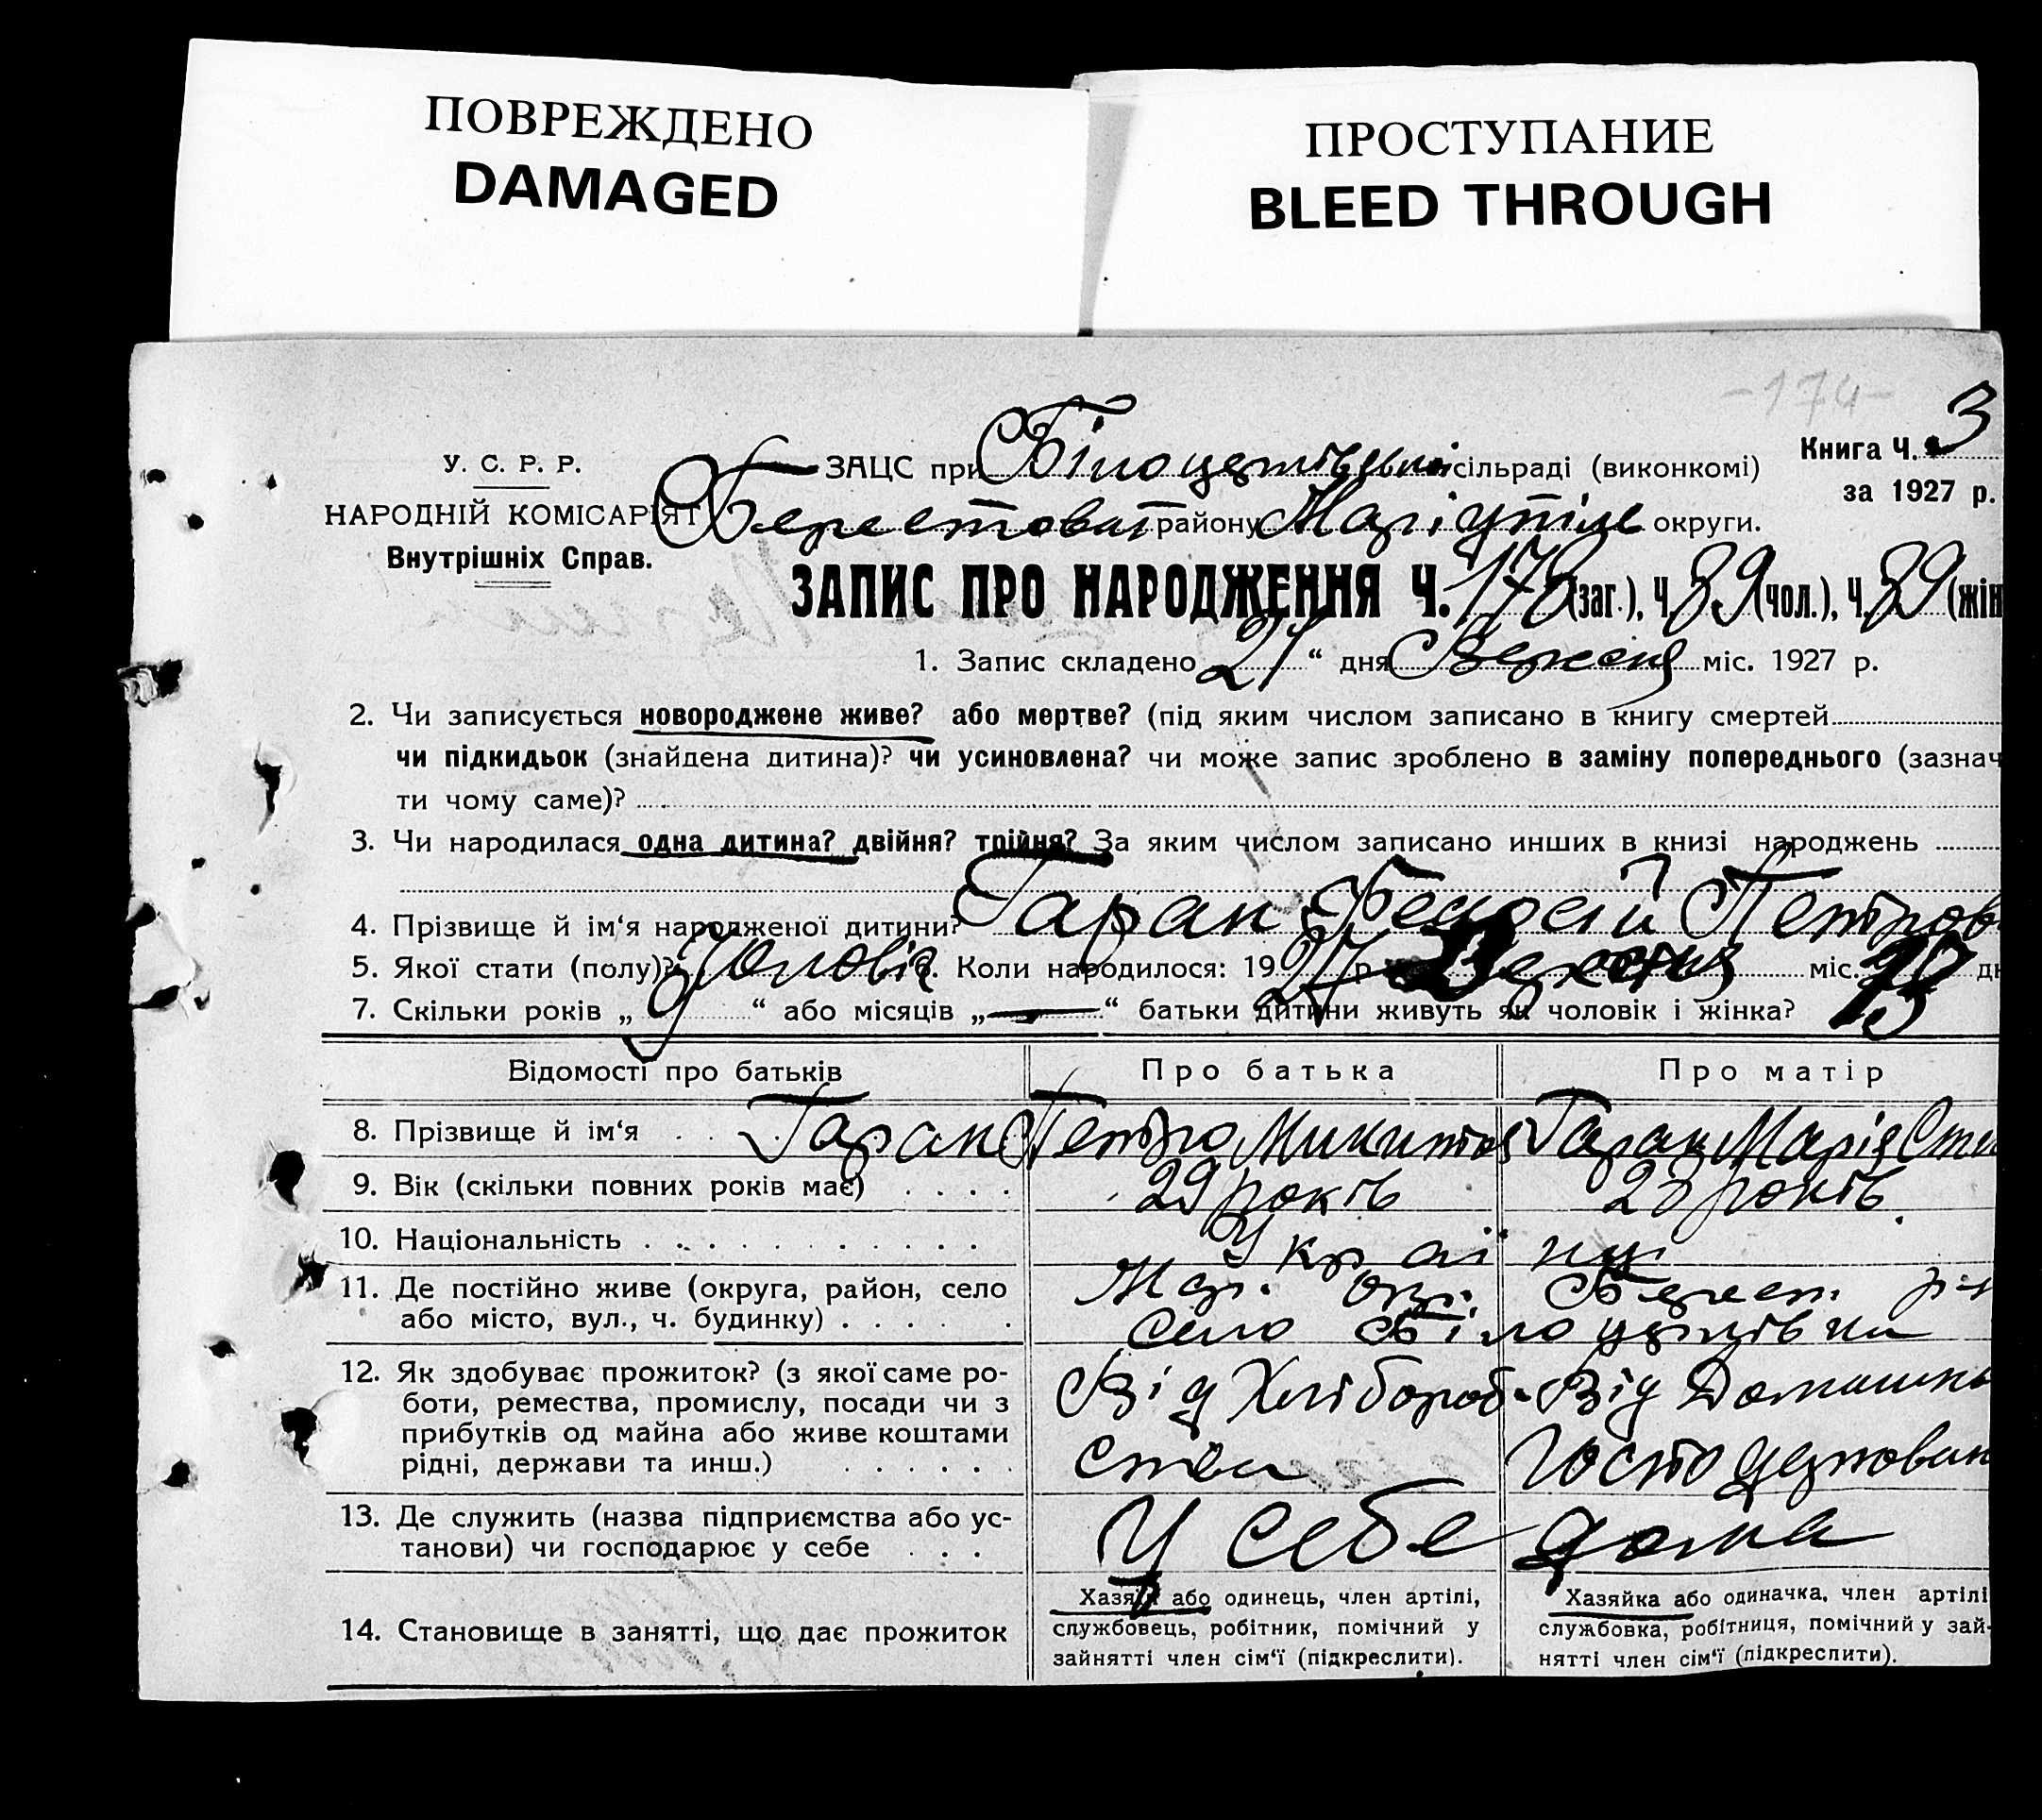 ПОВРЕЖДЕНО
DAMAGED
ПРОСТУПАНИЕ
BLEED THROUGH
-174-
У. С. Р. Р.
НАРОДНІЙ КОМІСАРІЯТ
Внутрішніх Справ.
Книга Ч. 3
за 1927 р.
ЗАЦС при Білоцерківській сільраді (виконкомі)
Берестоват району Маріупіль округи.
ЗАПИС ПРО НАРОДЖЕННЯ Ч. 178 (заг.), Ч. 89 (чол.), Ч. 89 (жін
1. Запис складено 21 “ дня Вересня міс. 1927 р.
2. Чи записується новороджене живе? або мертве? (під яким числом записано в книгу смертей
чи підкидьок (знайдена дитина)? чи усиновлена? чи може запис зроблено в заміну попереднього (зазнач
ти чому саме)?
3. Чи народилася одна дитина? двійня? трійня? За яким числом записано инших в книзі народжень
4. Прізвище й ім‘я народженої дитини? Гаран Федосій Петров
5. Якої стати (полу)? Чоловіч 6. Коли народилося: 1927 р Вересня міс. дн
7. Скільки років „ 9 “ або місяців „ — “ батьки дитини живуть як чоловік і жінка?
Відомості про батьків Про батька Про матір
8. Прізвище й ім‘я Гаран Петро Микитов Гаран Марія Сте
9. Вік (скільки повних років має) 29 років 28 років
10. Національність Українці
11. Де постійно живе (округа, район, село Мар. окр. Берест. р-н
або місто, вул., ч. будинку) Село Білоцерківка
12. Як здобуває прожиток? (з якої саме ро- Від Хлібороб- Від Домашнь
боти, ремества, промислу, посади чи з
прибутків од майна або живе коштами ства Господарюван
рідні, держави та инш.)
13. Де служить (назва підприємства або ус- У себе дома
танови) чи господарює у себе
14. Становище в занятті, що дає прожиток
Хазяїн або одинець, член артілі,
службовець, робітник, помічний у
зайнятті член сім‘ї (підкреслити).
Хазяйка або одиначка, член артілі
службовка, робітниця, помічний у зай-
нятті член сім‘ї (підкреслити).